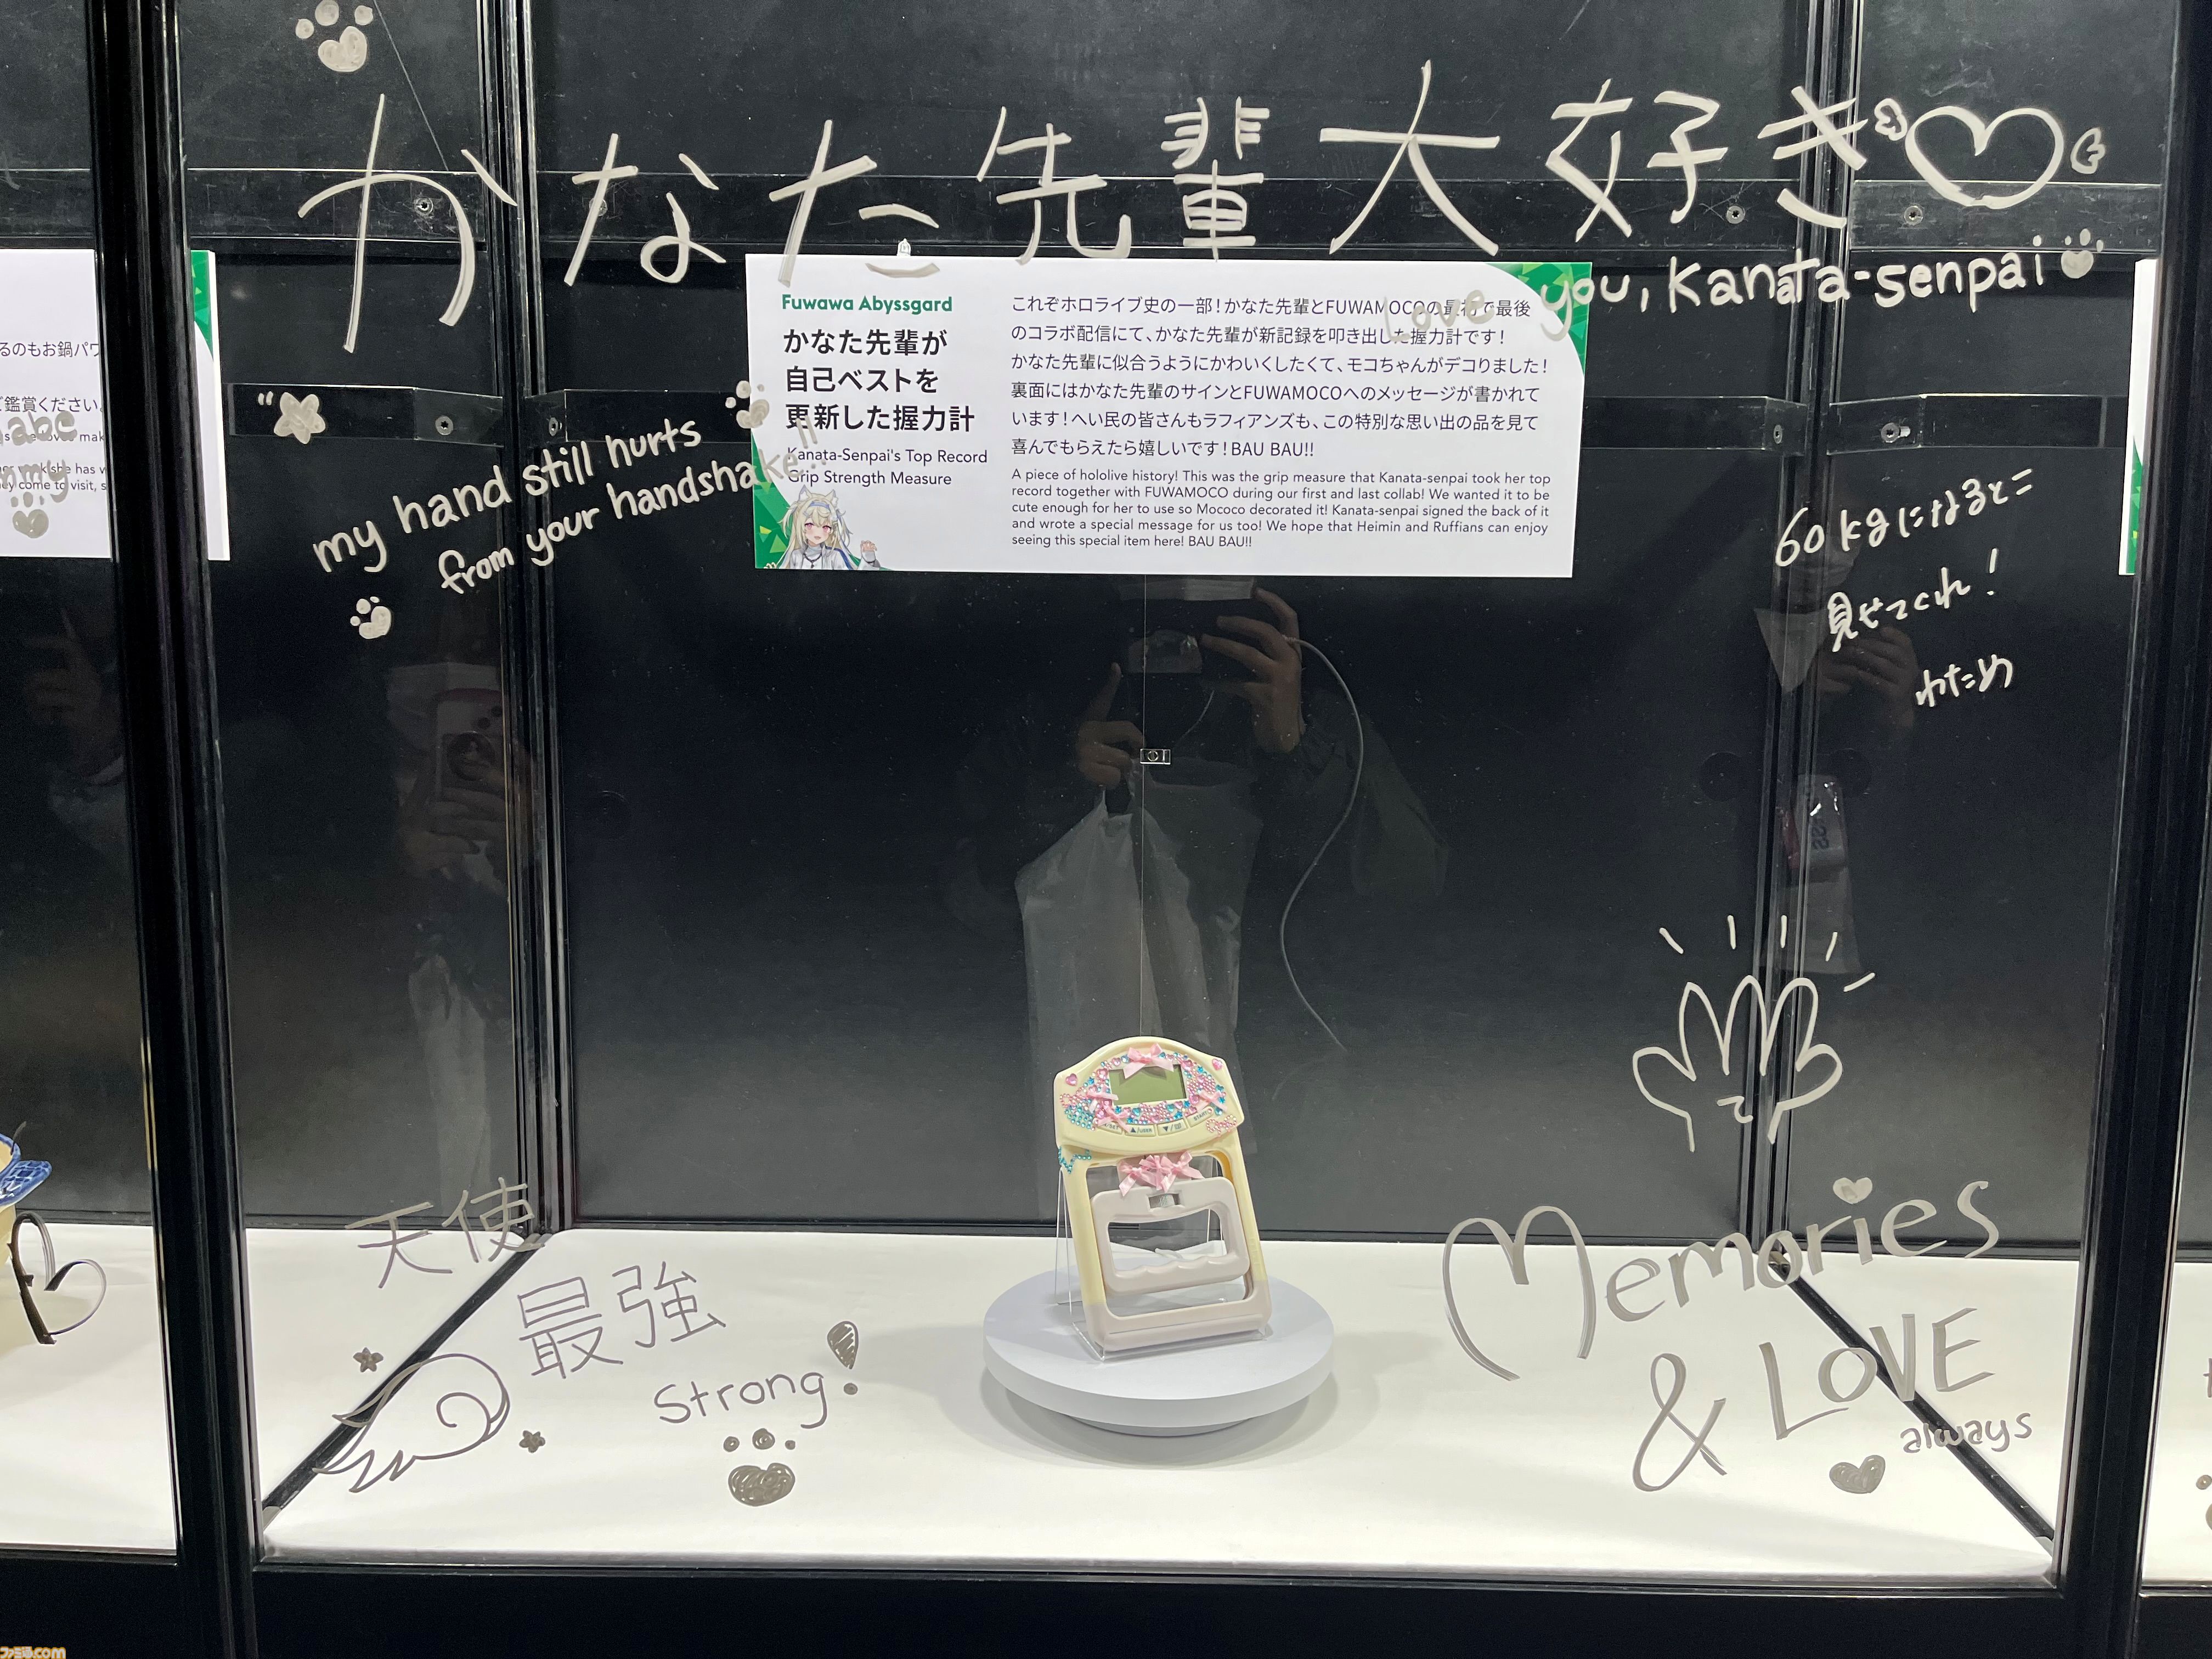 かなた先輩大好き
Love you, Kanata-senpai
Fuwawa Abyssgard
かなた先輩が
自己ベストを
更新した握力計
Kanata-Senpai's Top Record
Grip Strength Measure
これぞホロライブ史の一部！かなた先輩とFUWAMOCOの最初で最後
のコラボ配信にて、かなた先輩が新記録を叩き出した握力計です！
かなた先輩に似合うようにかわいくしたくて、モコちゃんがデコりました！
裏面にはかなた先輩のサインとFUWAMOCOへのメッセージが書かれて
います！へい民の皆さんもラフィアンズも、この特別な思い出の品を見て
喜んでもらえたら嬉しいです！BAU BAU!!
A piece of hololive history! This was the grip measure that Kanata-senpai took her top
record together with FUWAMOCO during our first and last collab! We wanted it to be
cute enough for her to use so Mococo decorated it! Kanata-senpai signed the back of it
and wrote a special message for us too! We hope that Heimin and Ruffians can enjoy
seeing this special item here! BAU BAU!!
るのもお鍋パワ
ご鑑賞ください。
my hand still hurts
from your handshake...
60kgになると=
見せてくれ！
わため
天使
最強
Strong!
Memories
& LOVE
always
ファミ通.com